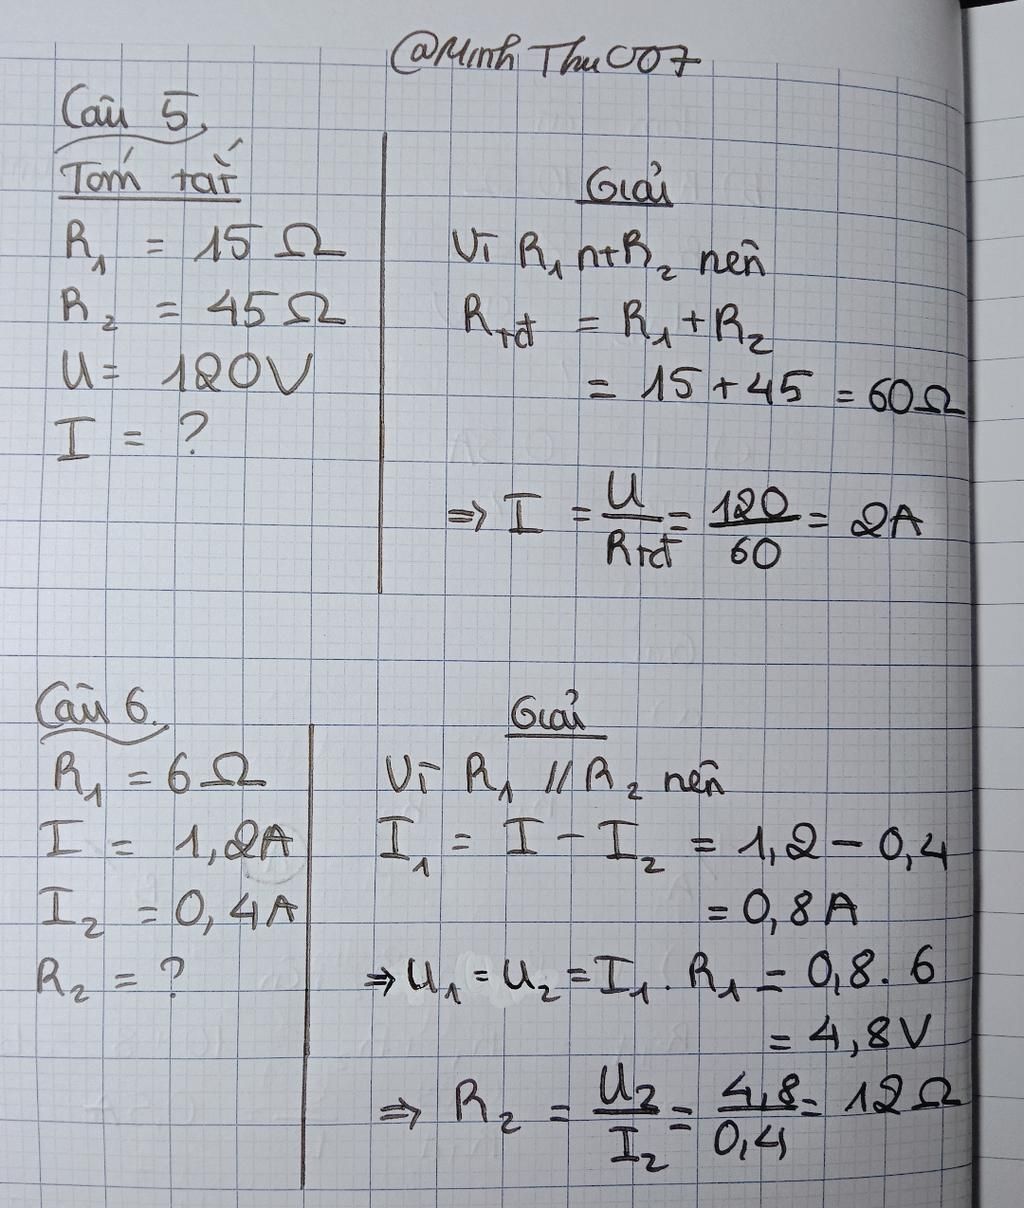 @MinhThu007
Câu 5.
Tóm tắt
R₁ = 15 Ω
R₂ = 45 Ω
U = 120V
I = ?
Giải
Vì R₁ nt R₂ nên
Rtđ = R₁ + R₂
= 15 + 45 = 60 Ω
=> I = U/Rtđ = 120/60 = 2A
Câu 6.
R₁ = 6 Ω
I = 1,2A
I₂ = 0,4A
R₂ = ?
Giải
Vì R₁ // R₂ nên
I₁ = I - I₂ = 1,2 - 0,4
= 0,8A
=> U₁ = U₂ = I₁ . R₁ = 0,8 . 6
= 4,8V
=> R₂ = U₂/I₂ = 4,8/0,4 = 12 Ω